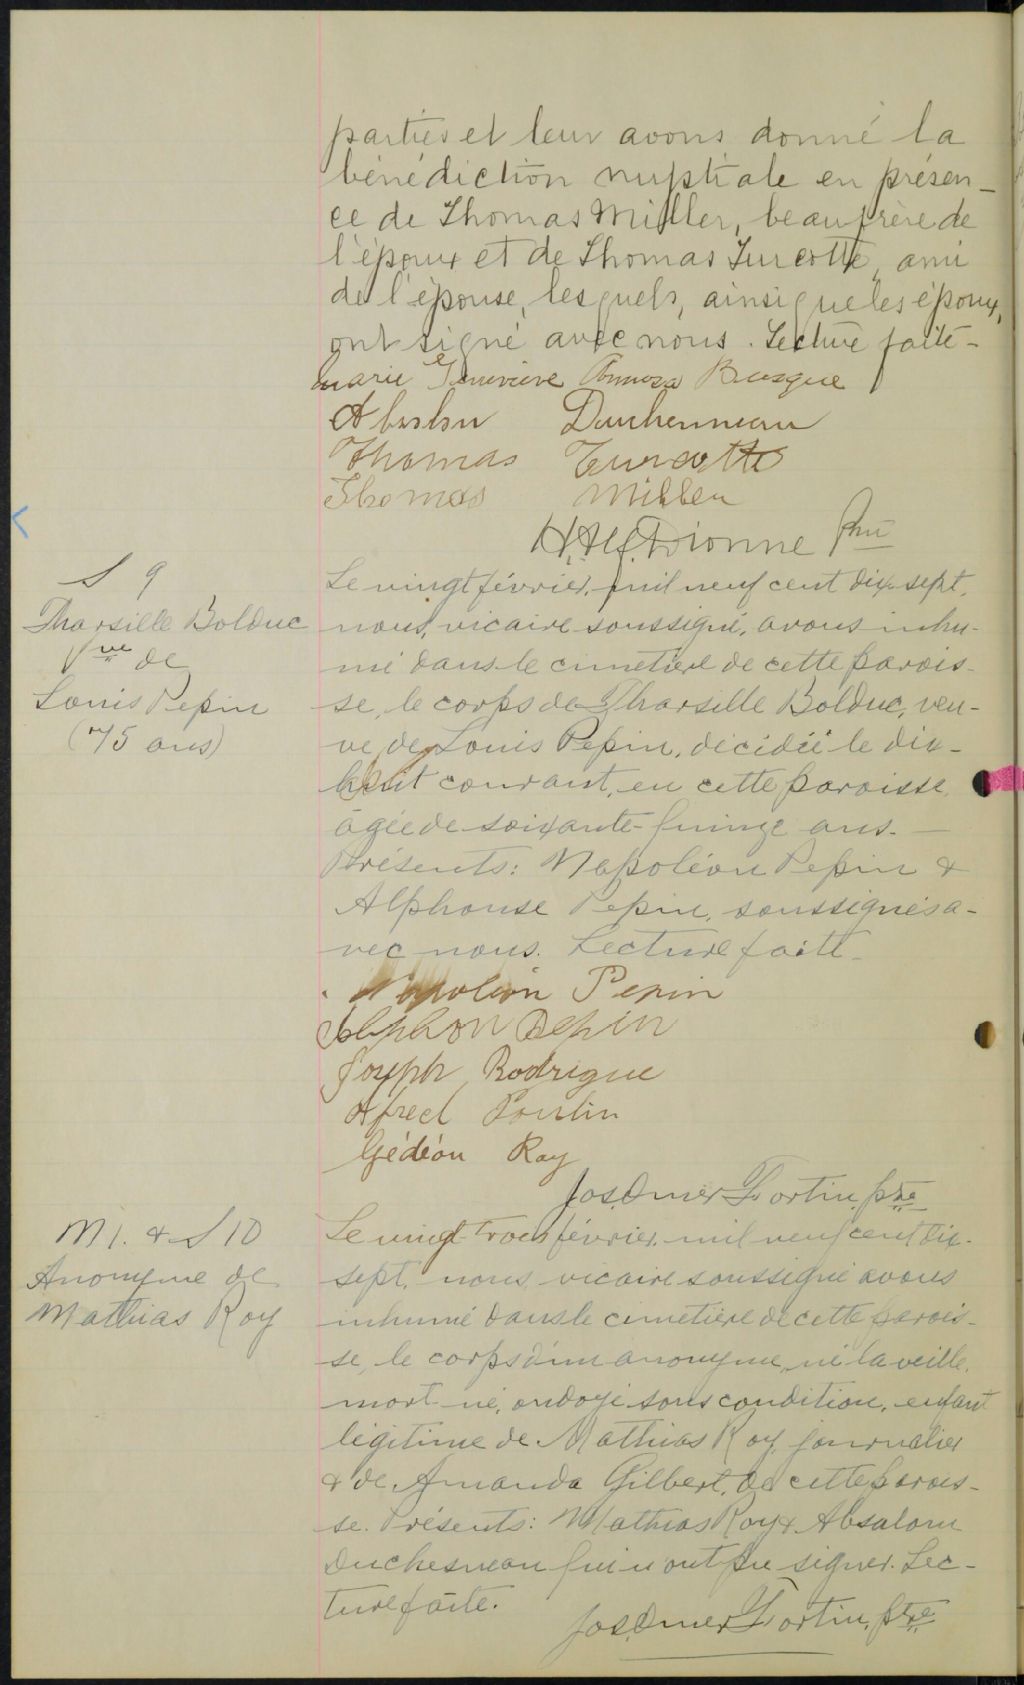 parties et leur avons donné la
bénédiction nuptiale en présen-
ce de Thomas Miller, beaufrère de
l'époux et de Thomas Turcotte, ami
de l'épouse, lesquels, ainsi que les époux,
ont signé avec nous. Lecture faite-
Marie Geneviève Busque
Duchenneau
Thomas Turcotte
Thomas Miller
Dionne Ptre
S 9
Tharsille Bolduc
Vve de
Louis Pepin
(75 ans)
Le vingt février, mil neuf cent dix-sept,
nous, vicaire soussigné, avons inhu-
mé dans le cimetière de cette parois-
se, le corps de Tharsille Bolduc, veu-
ve de Louis Pepin, décédée le dix-
huit courant, en cette paroisse,
âgée de soixante-quinze ans. —
Présents: Napoléon Pepin &
Alphonse Pepin, soussignés a-
vec nous. Lecture faite-
Napoléon Pepin
Alphon Pepin
Joseph Rodrigue
Alfred Poulin
Gédéon Roy
Jos. Omer Fortin, ptre
M 1. & S 10
Anonyme de
Mathias Roy
Le vingt-trois février, mil neuf cent dix-
sept, nous, vicaire soussigné avons
inhumé dans le cimetière de cette parois-
se, le corps d'un anonyme, né la veille,
mort-né, ondoyé sous condition, enfant
légitime de Mathias Roy, journalier
& de Amanda Gilbert, de cette parois-
se. Présents: Mathias Roy & Absalom
Duchesneau qui n'ont pu signer. Lec-
ture faite.
Jos. Omer Fortin, ptre